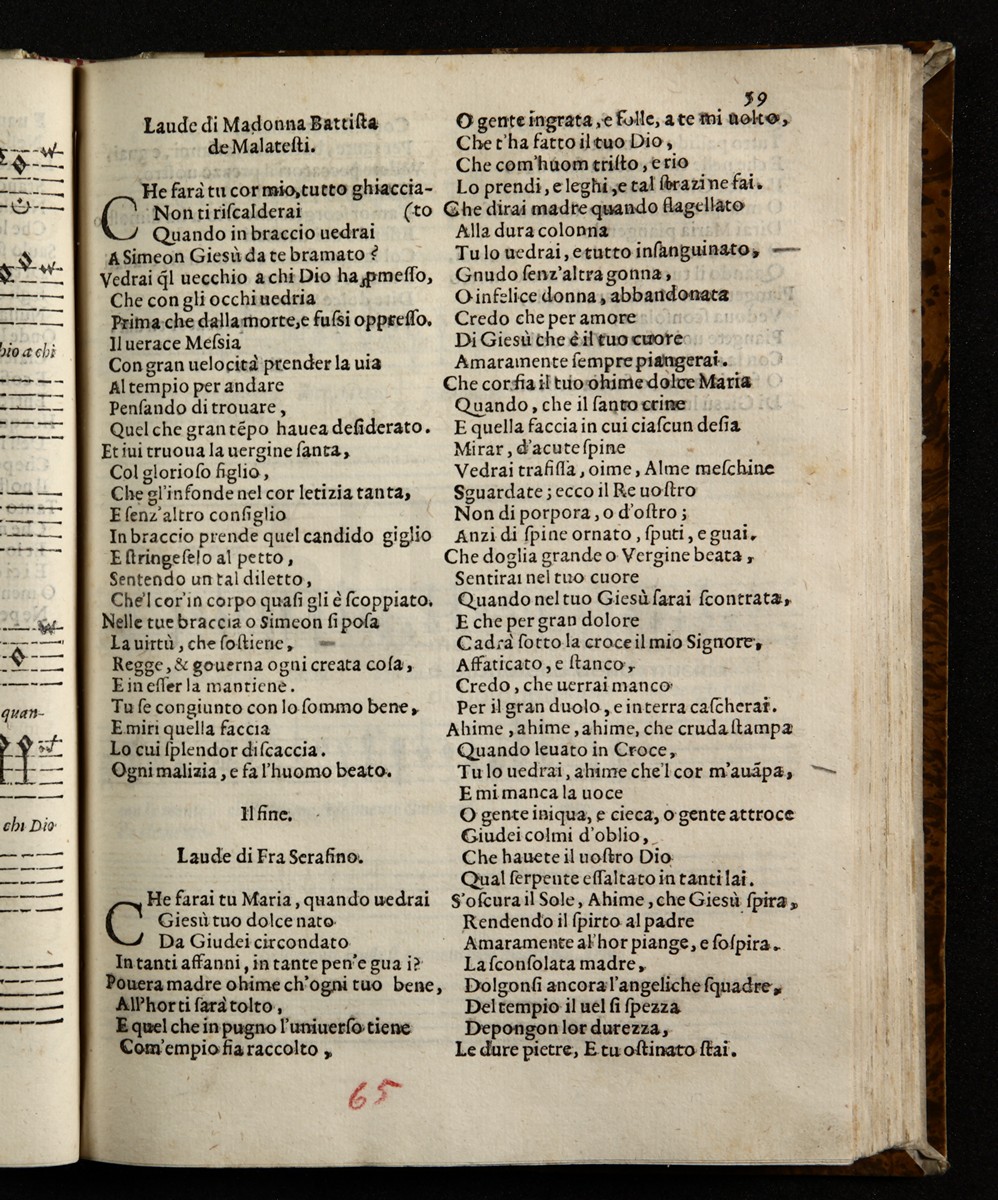 bio a chi
quan-
chi Dio
59
Laude di Madonna Battiſta
de Malateſti.
CHe farà tu cor mio, tutto ghiaccia-
Non ti riſcalderai (to
Quando in braccio uedrai
A Simeon Gieſù da te bramato?
Vedrai q̃l uecchio a chi Dio ha ꝓmeſſo,
Che con gli occhi uedria
Prima che dalla morte, e fuſsi oppreſſo.
Il uerace Meſsia
Con gran uelocità prender la uia
Al tempio per andare
Penſando di trouare,
Quel che gran tẽpo hauea deſiderato.
Et iui truoua la uergine ſanta,
Col glorioſo figlio,
Che gl'infonde nel cor letizia tanta,
E ſenz'altro conſiglio
In braccio prende quel candido giglio
E ſtringeſelo al petto,
Sentendo un tal diletto,
Che'l cor'in corpo quaſi gli è ſcoppiato.
Nelle tue braccia o Simeon ſi poſa
La uirtù, che ſoſtiene,
Regge, & gouerna ogni creata coſa,
E in eſſer la mantiene.
Tu ſe congiunto con lo ſommo bene,
E miri quella faccia
Lo cui ſplendor diſcaccia.
Ogni malizia, e fa l'huomo beato.
Il fine.
Laude di Fra Serafino.
CHe farai tu Maria, quando uedrai
Gieſù tuo dolce nato
Da Giudei circondato
In tanti affanni, in tante pen'e gua i?
Pouera madre ohime ch'ogni tuo bene,
All'hor ti ſarà tolto,
E quel che in pugno l'uniuerſo tiene
Com'empio ſia raccolto,
O gente ingrata, e folle, a te mi uolto,
Che t'ha fatto il tuo Dio,
Che com'huom triſto, e rio
Lo prendi, e leghi, e tal ſtrazi ne fai.
Che dirai madre quando flagellato
Alla dura colonna
Tu lo uedrai, e tutto inſanguinato,
Gnudo ſenz'altra gonna,
O infelice donna, abbandonata
Credo che per amore
Di Gieſù che è il tuo cuore
Amaramente ſempre piangerai.
Che cor fia il tuo ohime dolce Maria
Quando, che il ſanto crine
E quella faccia in cui ciaſcun deſia
Mirar, d'acute ſpine
Vedrai trafiſſa, oime, Alme meſchine
Sguardate; ecco il Re uoſtro
Non di porpora, o d'oſtro;
Anzi di ſpine ornato, ſputi, e guai.
Che doglia grande o Vergine beata,
Sentirai nel tuo cuore
Quando nel tuo Gieſù ſarai ſcontrata,
E che per gran dolore
Cadrà ſotto la croce il mio Signore,
Affaticato, e ſtanco,
Credo, che uerrai manco
Per il gran duolo, e in terra caſcherai.
Ahime, ahime, ahime, che cruda ſtampa
Quando leuato in Croce,
Tu lo uedrai, ahime che'l cor m'auãpa,
E mi manca la uoce
O gente iniqua, e cieca, o gente attroce
Giudei colmi d'oblio,
Che hauete il uoſtro Dio
Qual ſerpente eſſaltato in tanti lai.
S'oſcura il Sole, Ahime, che Gieſù ſpira,
Rendendo il ſpirto al padre
Amaramente al'hor piange, e ſoſpira.
La ſconſolata madre,
Dolgonſi ancora l'angeliche ſquadre,
Del tempio il uel ſi ſpezza
Depongon lor durezza,
Le dure pietre, E tu oſtinato ſtai.
65